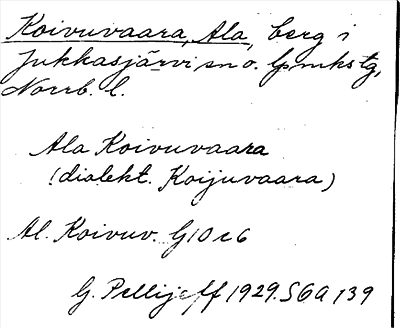 Koivuvaara, Ala, berg i
Jukkasjärvi sn o. lpmkstg,
Norrb. l.
Ala Koivuvaara
(dialekt. Koijuvaara)
Al. Koivuv. G10c6
G. Pellijeff 1929. SGA 139